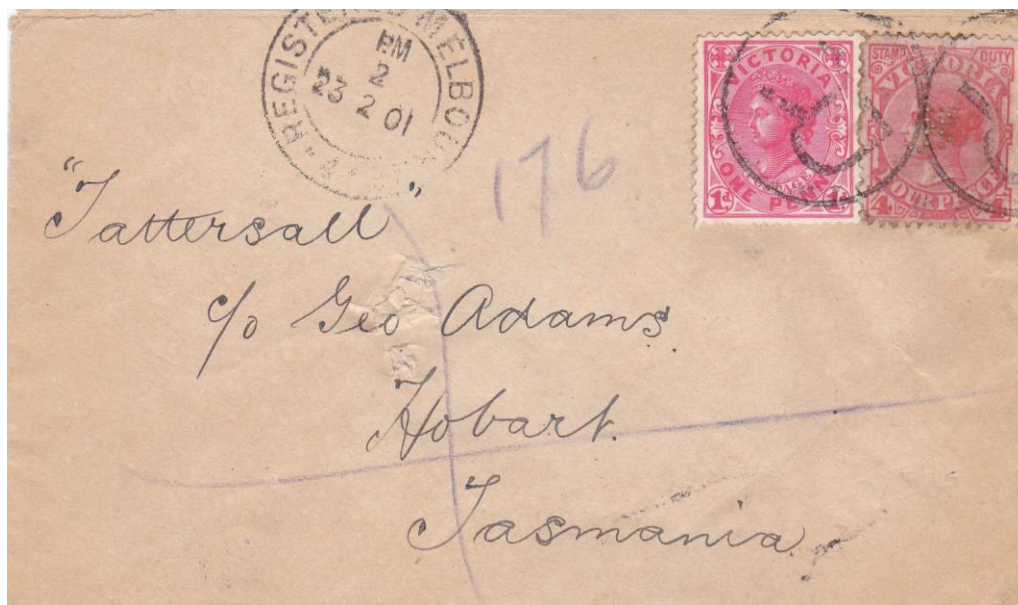 REGISTERED MELBOURNE
PM
2
23 2 01
176
VICTORIA
ONE PENNY
1d 1d
STAMP DUTY
VICTORIA
FOUR PENCE
4
"Tattersall"
c/o Geo Adams.
Hobart.
Tasmania